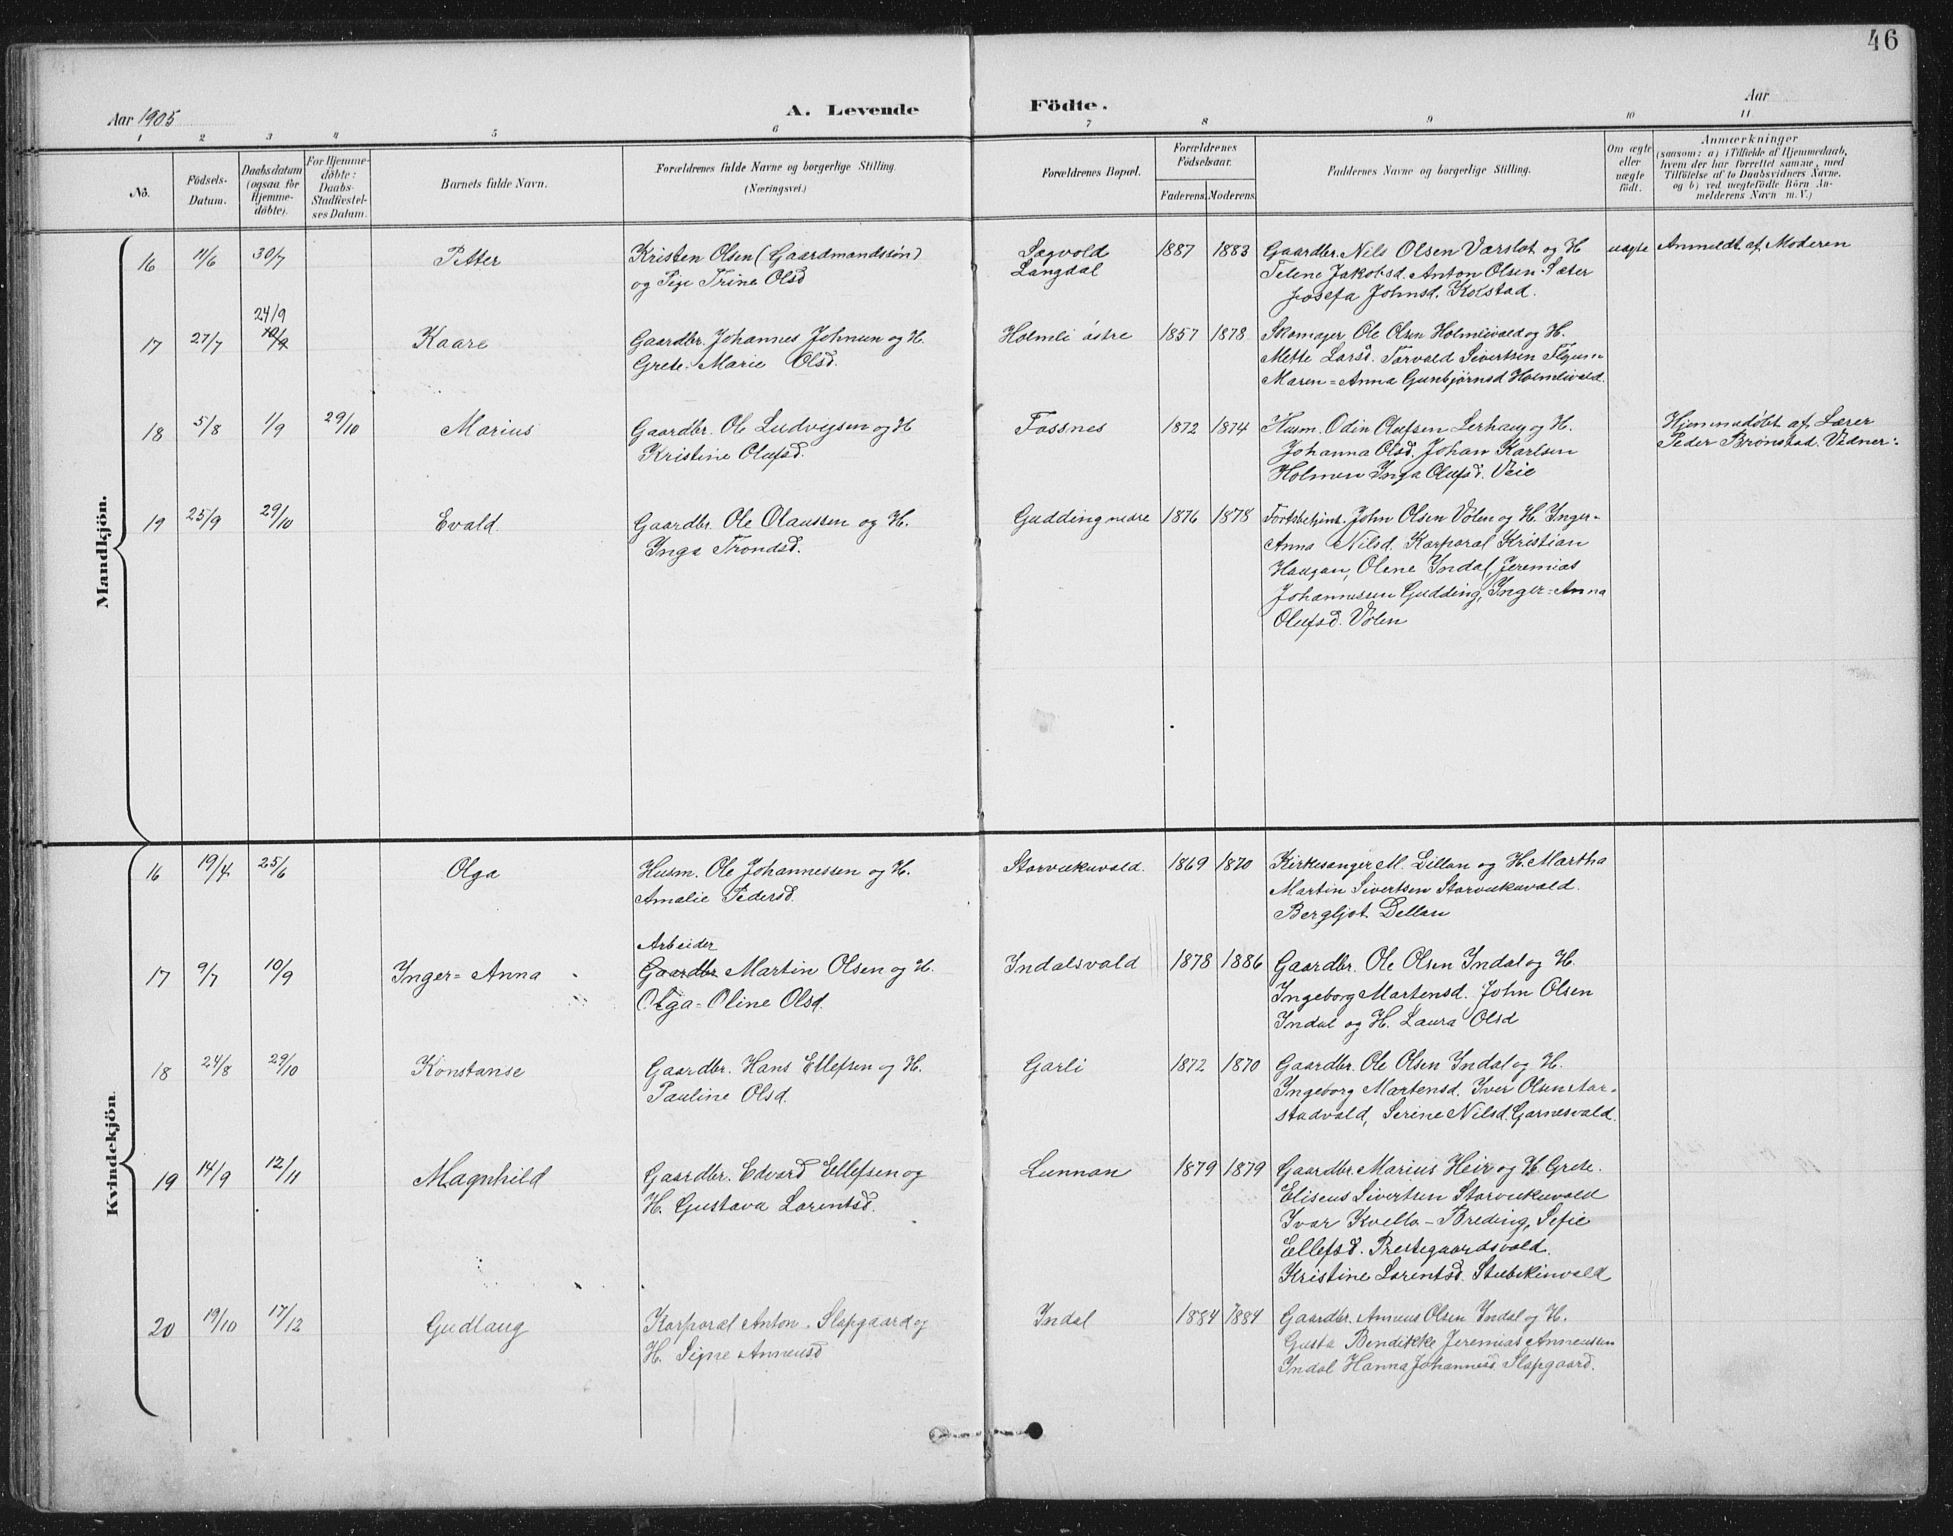 46
Aar 1905
A. Levende Födte.
Aar
1 2 3 4 5 6 7 8 9 10 11
No.
Födsels-Datum.
Daabsdatum (ogsaa for Hjemmedöbte).
For Hjemmedöbte: Daabs-Stadfæstelses Datum.
Barnets fulde Navn.
Forældrenes fulde Navne og borgerlige Stilling.
(Næringsvei.)
Forældrenes Bopæl.
Forældrenes Födselsaar.
Faderens. Moderens.
Faddernes Navne og borgerlige Stilling.
Om ægte eller uægte født.
Anmærkninger
(saasom: a) i Tilfælde af Hjemmedaab,
hvem der har forrettet samme, med
Tilföielse af to Daabsvidners Navne,
og b) ved uægtefödte Börn An-
melderens Navn m. V.)
Mandkjön.
16 11/6 30/7 Petter Kristen Olsen (Gaardmandssön) Sagvold 1887 1883 Gaardbr. Nils Olsen Værslot og H uægte Anmeldt af Moderen
og Pige Trine Olsd Langdal Telene Jakobsd. Anton Olsen Sæter
Josefa Johnsd. Kolstad.
24/9
17 27/7 10/9 Kaare Gaardbr. Johannes Johnsen og H. Holmli östre 1857 1878 Skomager Ole Olsen Holmlivald og H.
Grete-Marie Olsd. Mette Larsd. Torvald Sivertsen
Maren-Anna Gunbjørnsd Holmlivald.
18 5/8 1/9 29/10 Marius Gaardbr. Ole Ludvigsen og H Fossnes 1872 1874 Husm. Odin Olufsen Lerhaug og H. Hjemmedöbt af Lærer
Kristine Olufsd. Johanna Olsd. Johan Karlsen Peder Brönstad. Vidner:
Holmen Inga Olufsd. Veie
19 25/9 29/10 Evald Gaardbr. Ole Olaussen og H. Gudding nedre 1876 1878 Forstbetjent. John Olsen Völen og H. Inger-
Inga Trondsd. Anna Nilsd. Korporal Kristian
Haugan, Olene Indal, Jeremias
Johannessen Gudding, Inger-Anna
Olufsd. Völen
Kvindekjön.
16 19/4 25/6 Olga Husm. Ole Johannessen og H. Storvukuvald. 1869 1870 Kirkesanger M. Dillan og H. Martha
Amalie Pedersd. Martin Sivertsen Storvukuvald.
Bergljot Dillan
Arbeider
17 9/7 10/9 Inger-Anna Gaardbr. Martin Olsen og H. Indalsvald 1878 1886 Gaardbr. Ole Olsen Indal og H.
Olga-Oline Olsd. Ingeborg Martensd. John Olsen
Indal og H. Laura Olsd
18 24/8 29/10 Konstanse Gaardbr. Hans Ellefsen og H. Garli 1872 1870 Gaardbr. Ole Olsen Indal og H.
Pauline Olsd. Ingeborg Martensd. Iver Olsen Aar-
stadvald, Serine Nilsd. Garnesvald.
19 14/9 12/11 Magnhild Gaardbr. Edvard Ellefsen og Lunnan 1879 1879 Gaardbr. Marius Heir og H. Grete.
H. Gustava Lorentsd. Eliseus Sivertsen Storvukuvald
Ivar Kvello-Breding, Sefie
Ellefsd. Prestegaardsvald.
Kristine Lorentsd. Stubskinvald
20 19/10 17/12 Gudlaug Korporal Anton Slapgaard og Indal 1884 1884 Gaardbr. Anneus Olsen Indal og H.
H. Signe Anneusd Gusta Bendikke Jeremias Anneussen
Indal Hanna Johannesd. Slapgaard.